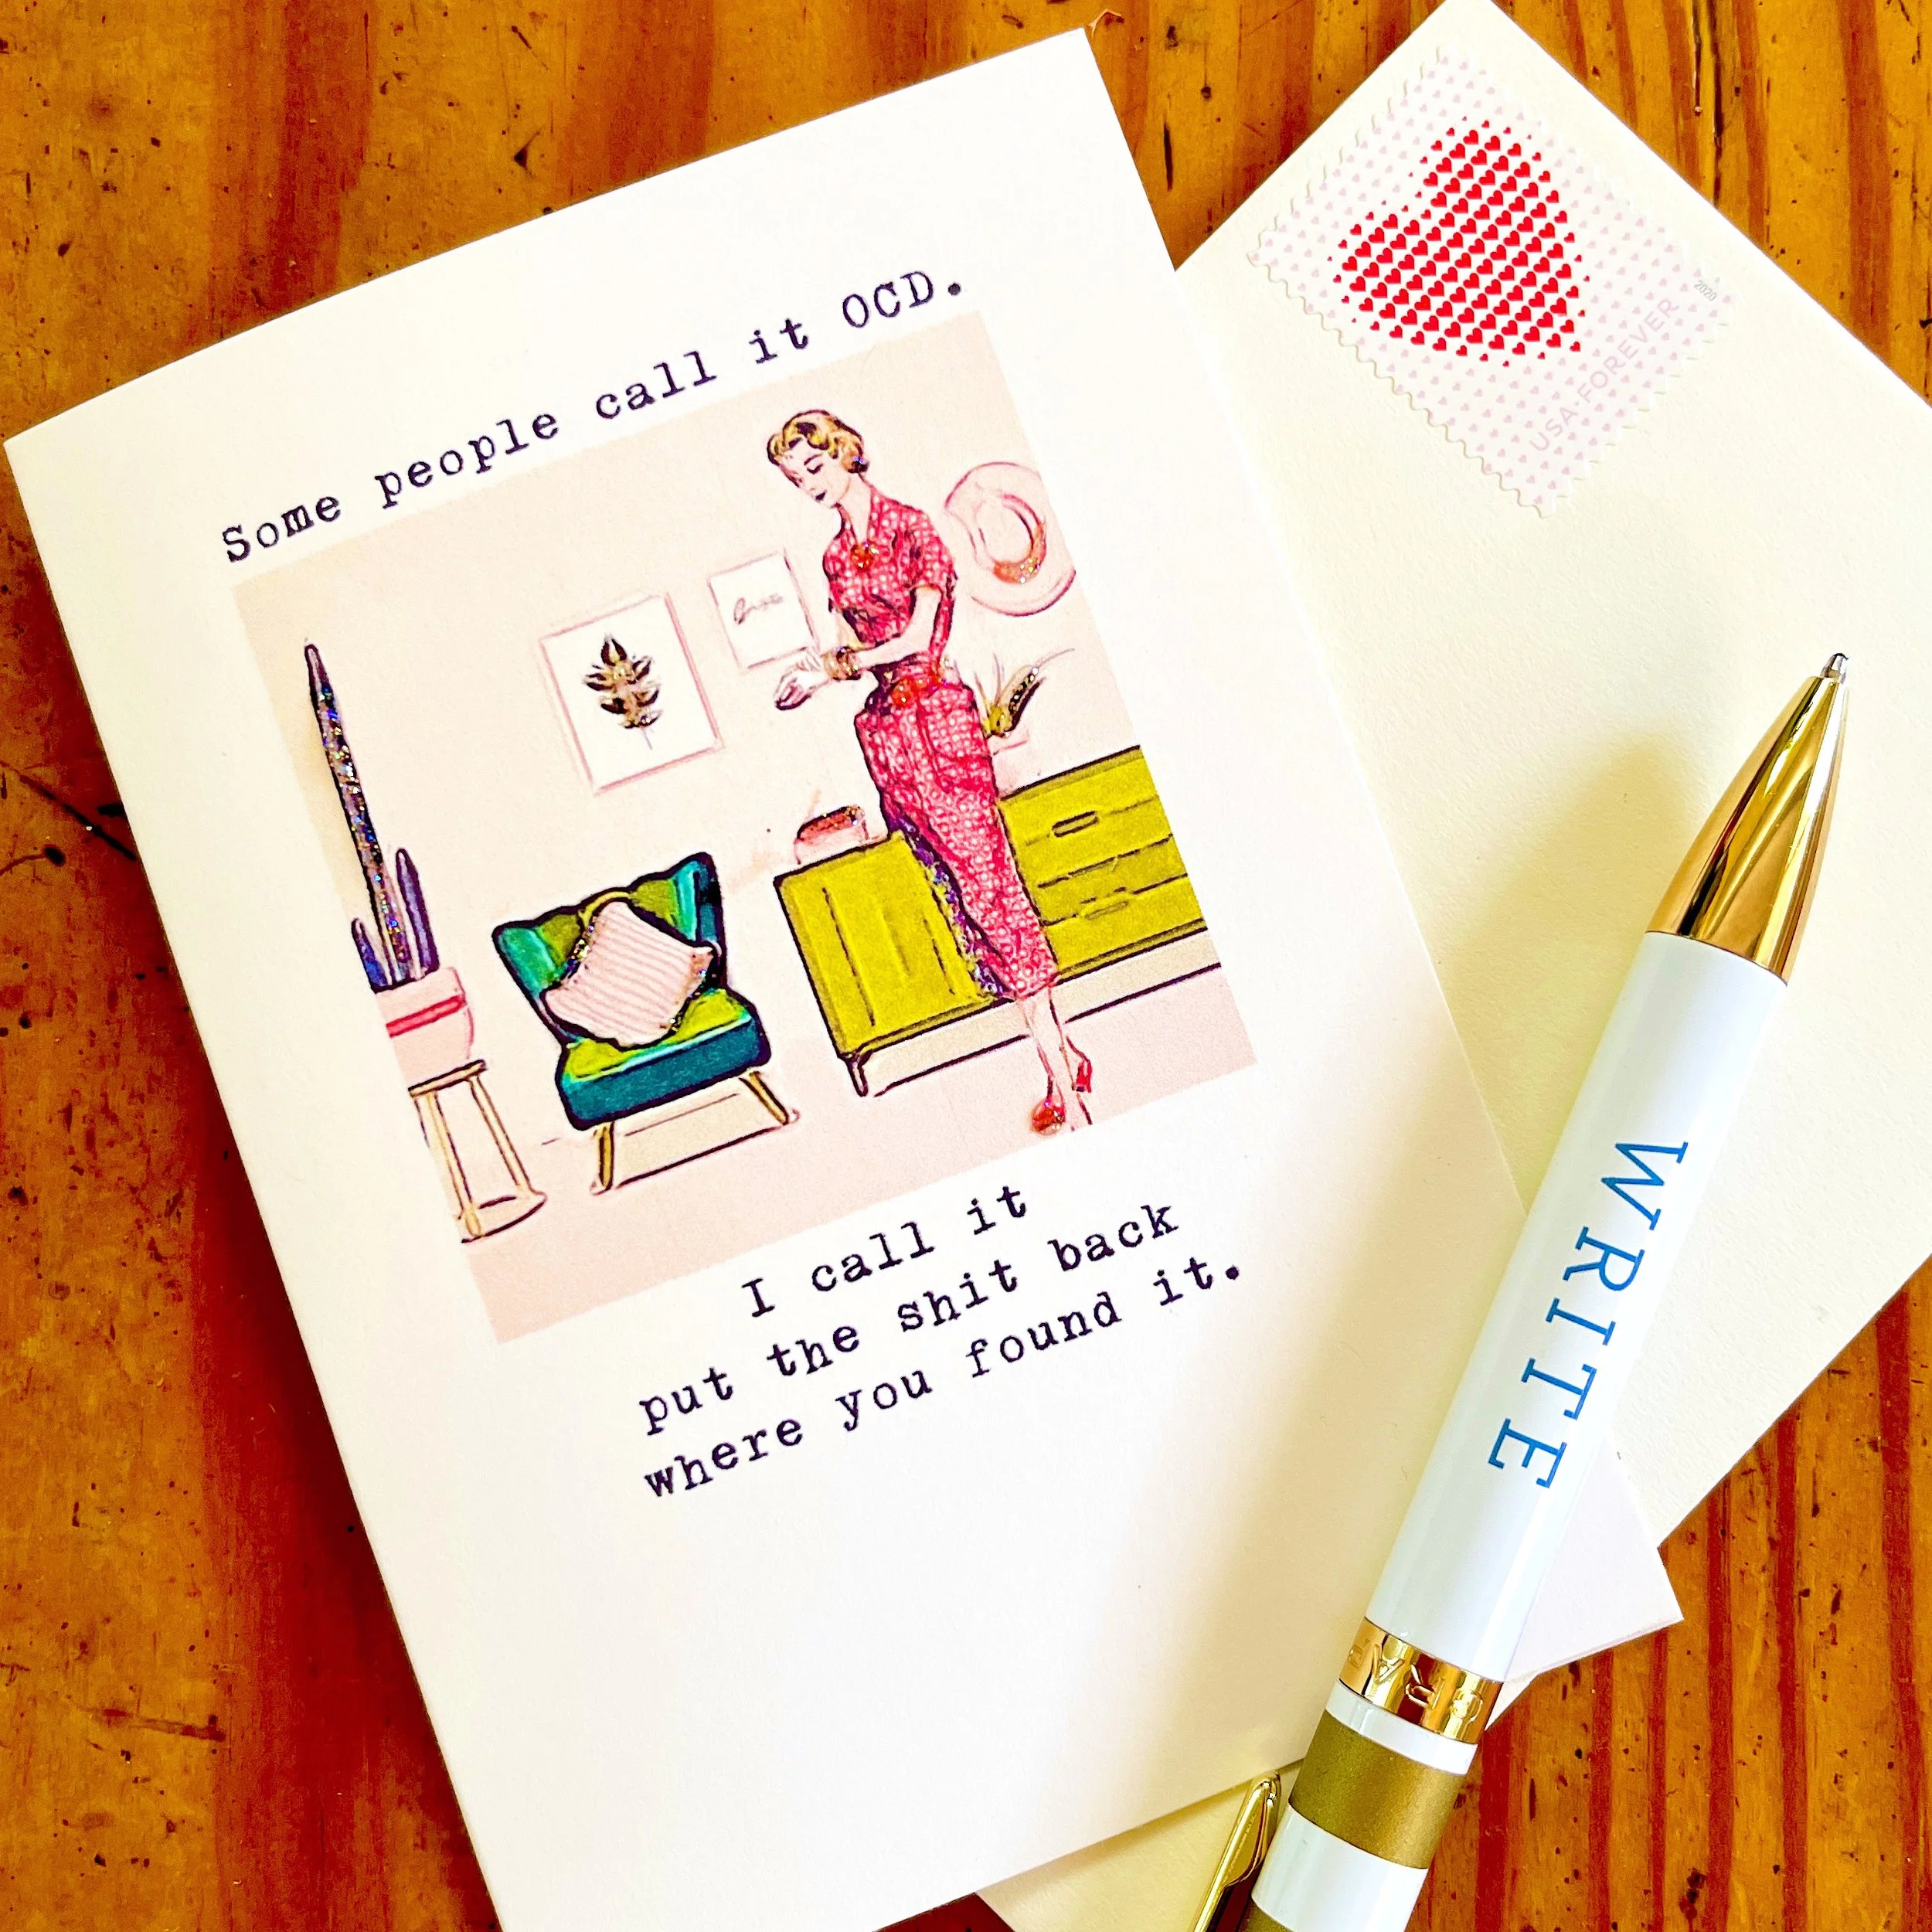 Some people call it OCD.
I call it
put the shit back
where you found it.
2020
USA FOREVER
WRITE